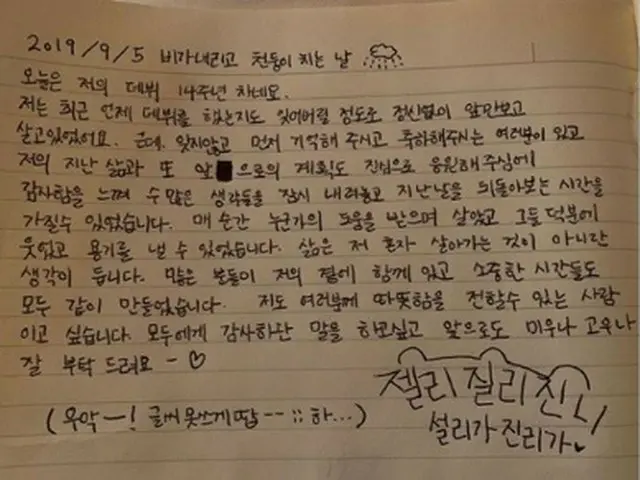 2019/9/5 비가내리고 천둥이 치는 날
오늘은 저의 데뷔 14주년 차네요.
저는 최근 언제 데뷔를 했는지도 잊어버릴 정도로 정신없이 앞만보고
살고있었어요. 근데, 잊지않고 먼저 기억해 주시고 축하해주시는 여러분이 있고
저의 지난 삶과 또 앞으로의 계획도 진심으로 응원해주심에
감사함을 느끼며 수많은 생각들을 잠시 내려놓고 지난날을 뒤돌아보는 시간을
가질수 있었습니다. 매 순간 누군가의 도움을 받으며 살았고 그들 덕분에
웃었고 용기를 낼 수 있었습니다. 삶은 저 혼자 살아가는 것이 아니란
생각이 듭니다. 많은 분들이 저의 곁에 함께 있고 소중한 시간들도
모두 같이 만들었습니다. 저도 여러분께 따뜻함을 전할수 있는 사람
이고 싶습니다. 모두에게 감사하단 말을 하고싶고 앞으로도 미우나 고우나
잘 부탁 드려요 ~ ♡
젤리 질리 진!
(우악ー! 글씨 못쓰게땁--;; 하...)
설리가 진리가♥